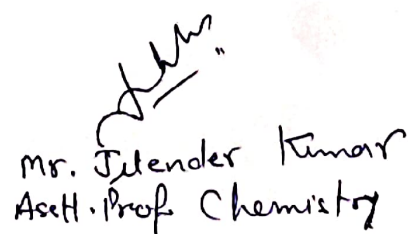 Mr. Jitender Kumar
Asstt. Prof. Chemistry